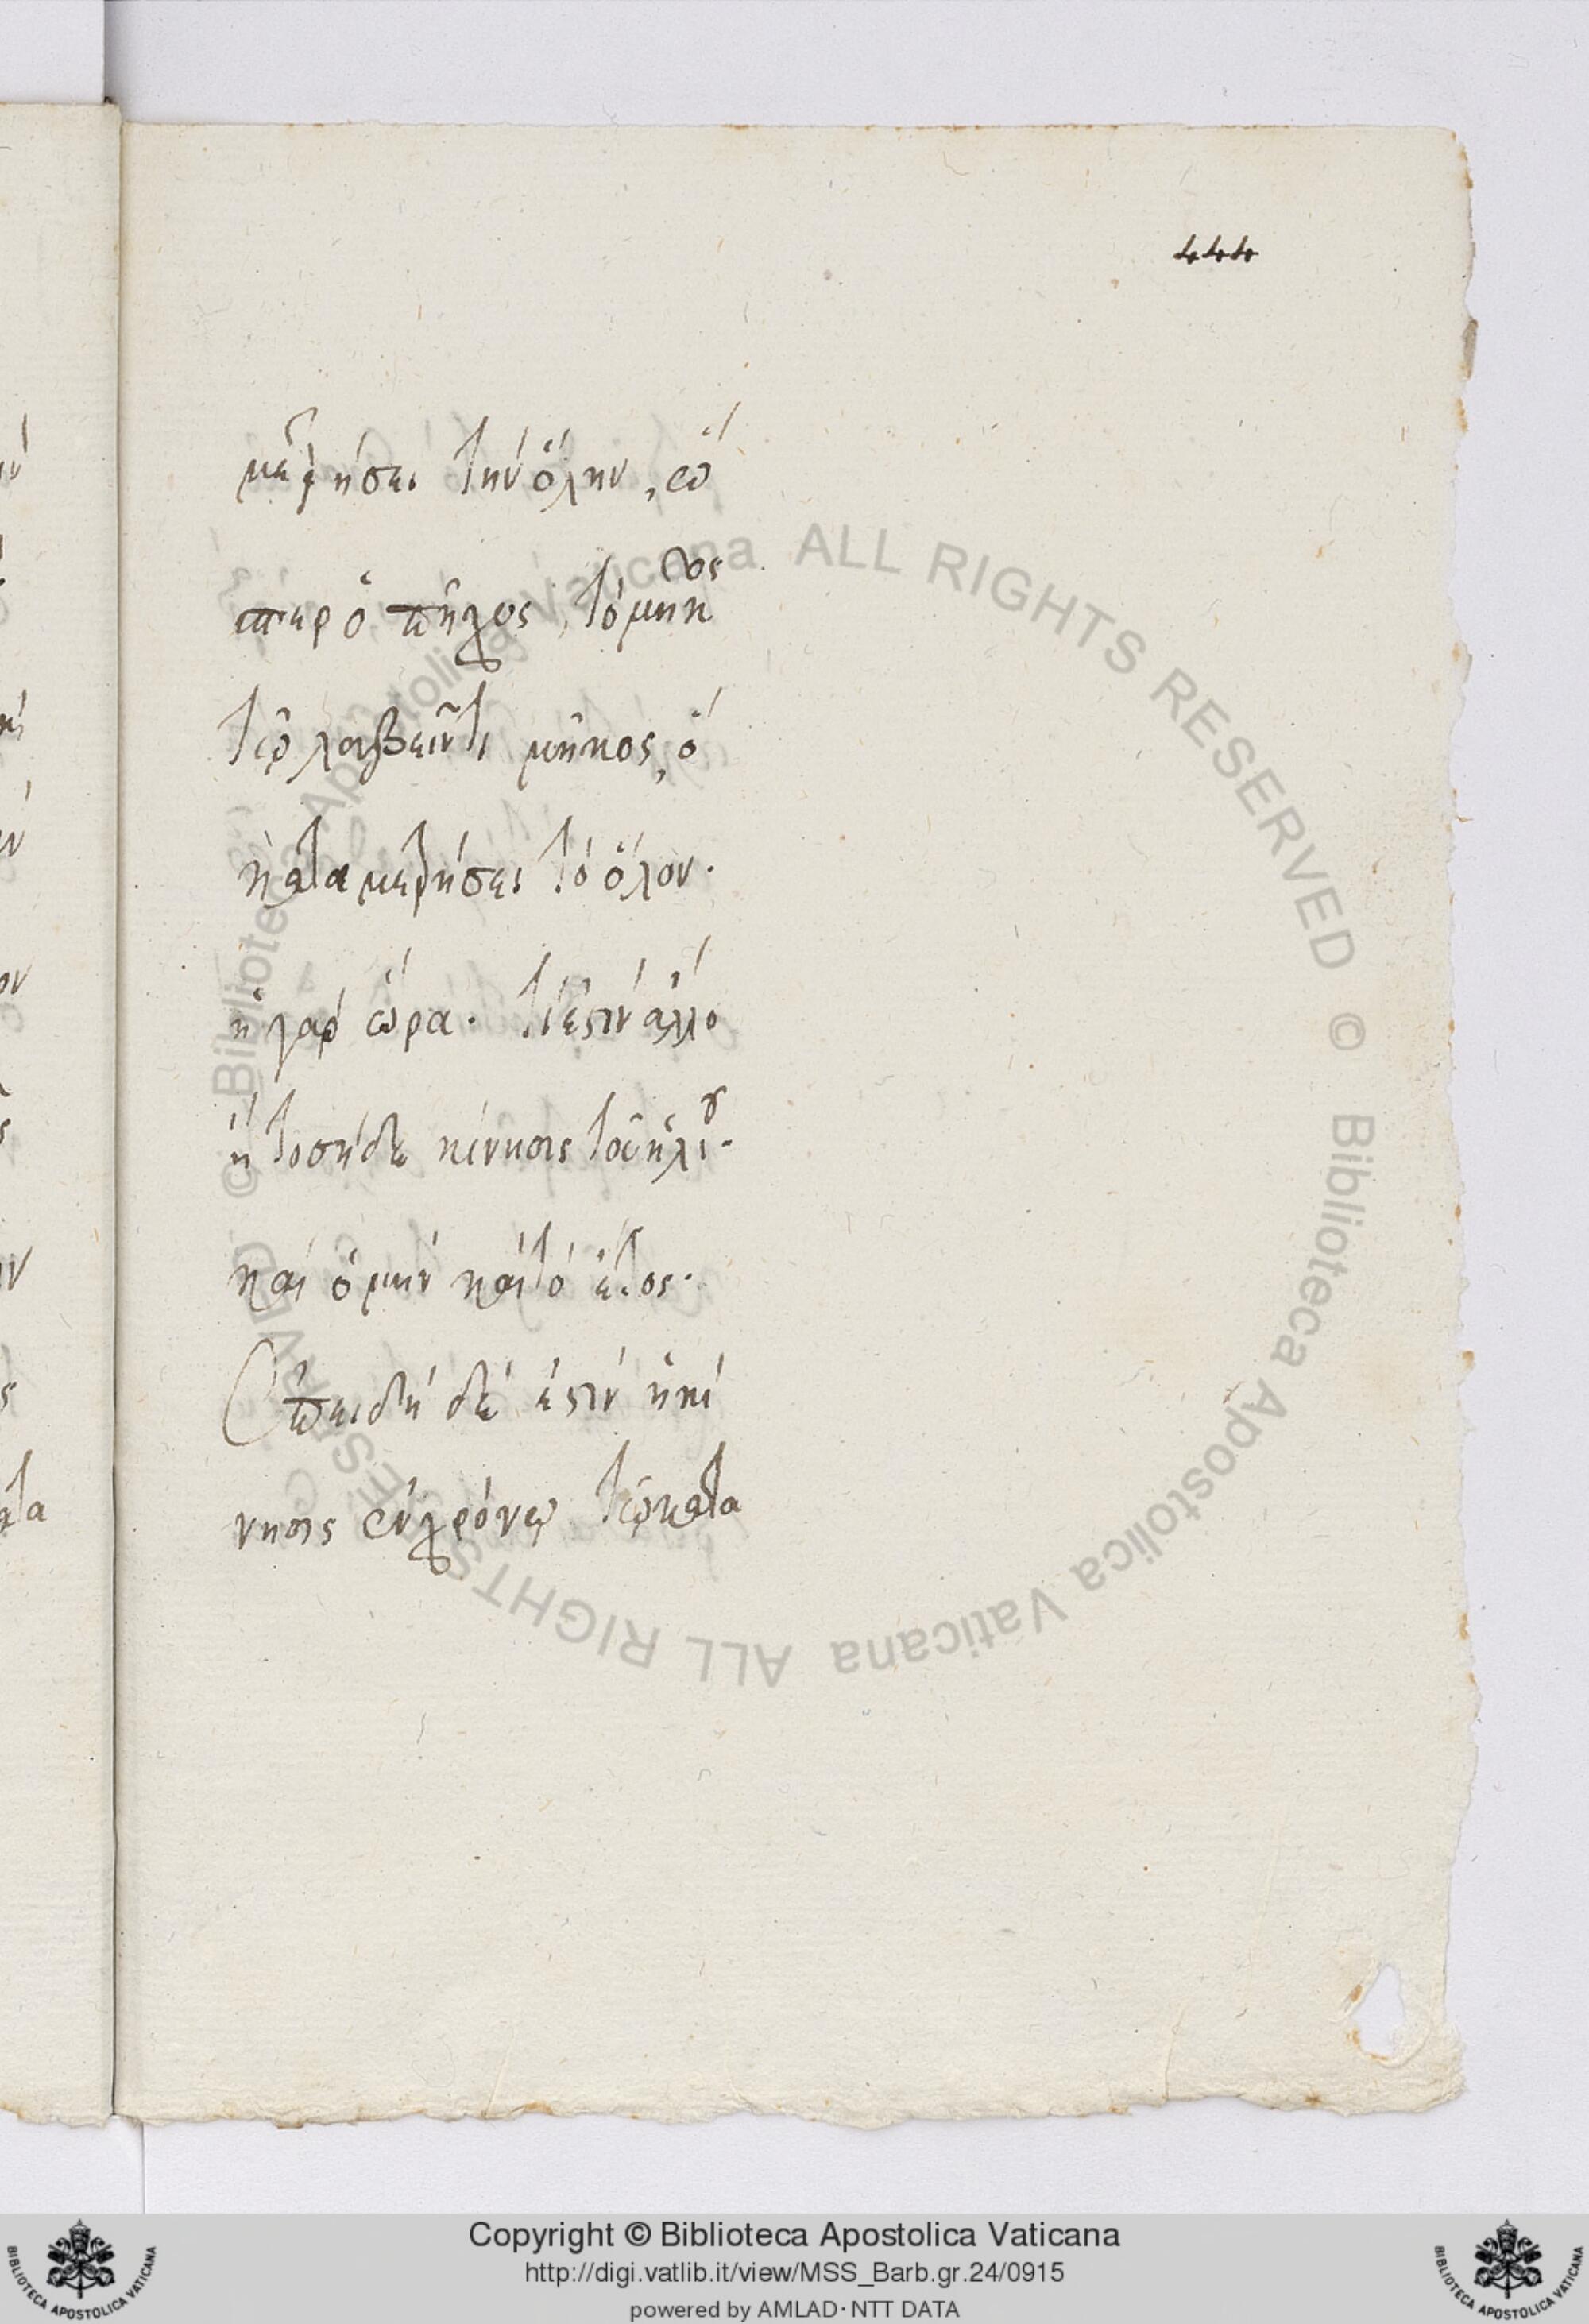 444
μετρήσει τὴν ὅλην, ὥσ
περ ὁ πῆχυς, τὸ μῆκος
τῷ λαβεῖν τι μῆκος, ὃ
καταμετρήσει τὸ ὅλον·
ἡ γὰρ ὥρα· τί ἐστιν ἄλλο
ἢ τοσήδε κίνησις τοῦ ἡλίου·
καὶ ὁ μὴν καὶ τὸ ἔτος·
Ἐπειδὴ δέ ἐστιν ἡ κί
νησις ἐν χρόνῳ τῷ κατα
© Biblioteca Apostolica Vaticana ALL RIGHTS RESERVED © Biblioteca Apostolica Vaticana ALL RIGHTS RESERVED
Copyright © Biblioteca Apostolica Vaticana
http://digi.vatlib.it/view/MSS_Barb.gr.24/0915
powered by AMLAD·NTT DATA
BIBLIOTECA APOSTOLICA VATICANA
BIBLIOTECA APOSTOLICA VATICANA